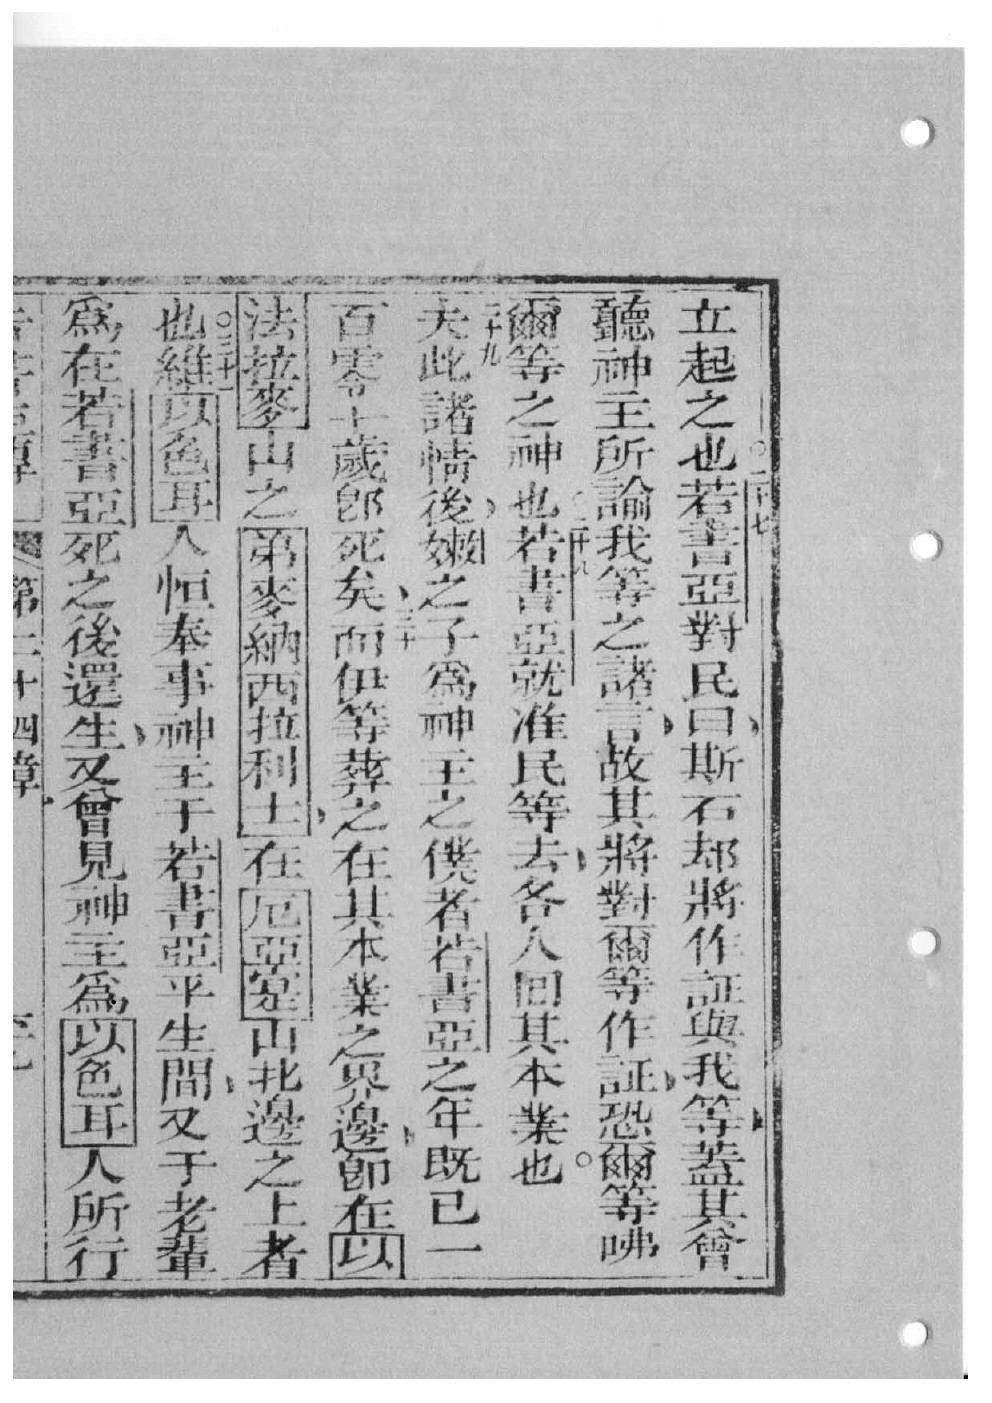 立起之也○二十七若書亞對民曰斯石却將作証與我等蓋其曾
聽神主所諭我等之諸言故其將對爾等作証恐爾等咈
爾等之神也二十八若書亞就准民等去各人回其本業也○
二十九夫此諸情後嫩之子為神主之僕者若書亞之年既已一
百零十歲卽死矣三十而伊等葬之在其本業之界邊卽在以
法拉麥山之第麥納西拉利士在厄亞寔山北邊之上者
也○三十一維以色耳人恒奉事神主于若書亞平生間又于老輩
為在若書亞死之後還生又曾見神主為以色耳人所行
第二十四章